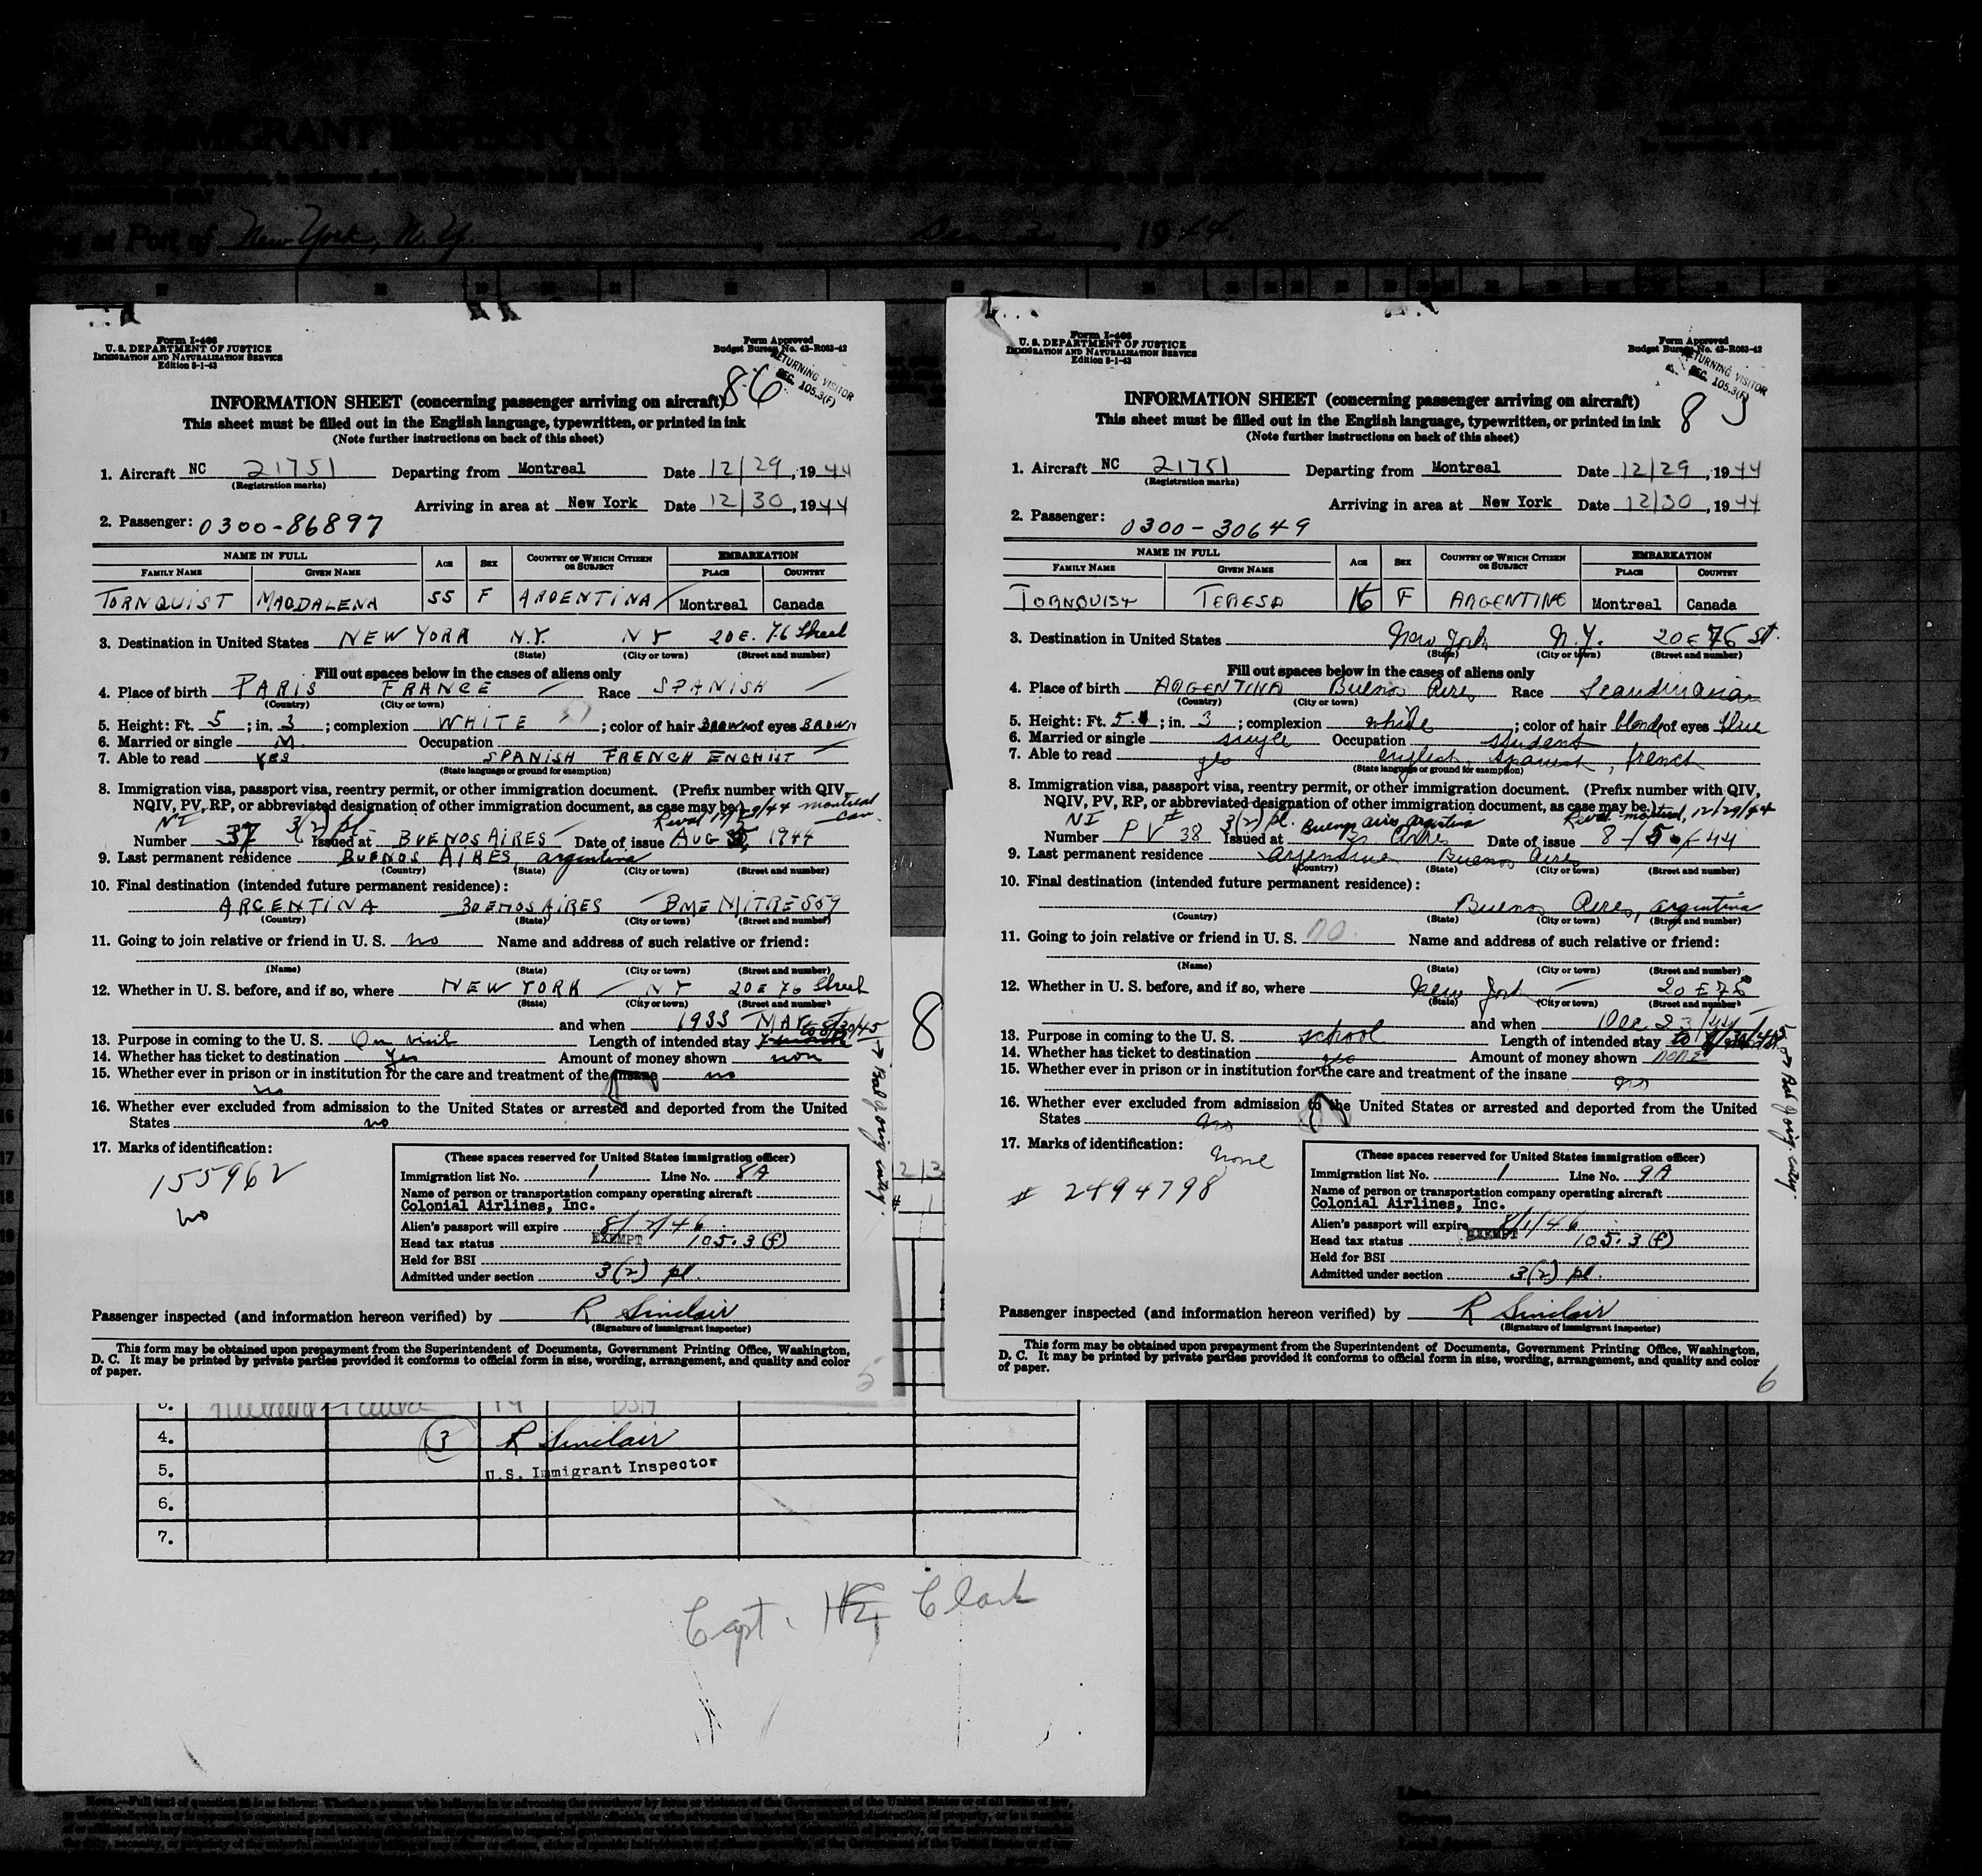 at Port of New York, N.Y. , 1944.
Form I-466
U. S. DEPARTMENT OF JUSTICE
IMMIGRATION AND NATURALIZATION SERVICE
Edition 8-1-43
Form Approved
Budget Bureau No. 43-R063-42
RETURNING VISITOR
SEC. 105.3(F)
86
INFORMATION SHEET (concerning passenger arriving on aircraft)
This sheet must be filled out in the English language, typewritten, or printed in ink
(Note further instructions on back of this sheet)
1. Aircraft NC 21751 Departing from Montreal Date 12/29, 1944
(Registration marks)
Arriving in area at New York Date 12/30, 1944
2. Passenger: 0300-86897
NAME IN FULL AGE SEX COUNTRY OF WHICH CITIZEN OR SUBJECT EMBARKATION
FAMILY NAME GIVEN NAME PLACE COUNTRY
TORNQUIST MAGDALENA 55 F ARGENTINA Montreal Canada
3. Destination in United States NEW YORK N.Y. NY 20 E. 76 Street
(State) (City or town) (Street and number)
Fill out spaces below in the cases of aliens only
4. Place of birth PARIS FRANCE Race SPANISH
(Country) (City or town)
5. Height: Ft. 5; in. 3; complexion WHITE; color of hair BROWN of eyes BROWN
6. Married or single M. Occupation
7. Able to read YES SPANISH FRENCH ENGHIST
(State language or ground for exemption)
8. Immigration visa, passport visa, reentry permit, or other immigration document. (Prefix number with QIV,
NQIV, PV, RP, or abbreviated designation of other immigration document, as case may be.)
NI 3(2) pl. Reval 12/29/44 montreal can.
Number 37 Issued at BUENOS AIRES Date of issue AUG 1944
9. Last permanent residence BUENOS AIRES, argentina
(Country) (State) (City or town) (Street and number)
10. Final destination (intended future permanent residence):
ARGENTINA BUENOS AIRES BME MITRE 559
(Country) (State) (City or town) (Street and number)
11. Going to join relative or friend in U. S. no Name and address of such relative or friend:
(Name) (State) (City or town) (Street and number)
12. Whether in U. S. before, and if so, where NEW YORK NY 20 E 76 Street
(State) (City or town) (Street and number)
and when 1933 MAY
13. Purpose in coming to the U. S. On visit Length of intended stay to 8/30/45
14. Whether has ticket to destination Yes Amount of money shown non
15. Whether ever in prison or in institution for the care and treatment of the insane no
no
16. Whether ever excluded from admission to the United States or arrested and deported from the United
States no
17. Marks of identification:
155962
no
→ Bal of orig entry
(These spaces reserved for United States immigration officer)
Immigration list No. 1 Line No. 8A
Name of person or transportation company operating aircraft
Colonial Airlines, Inc.
Alien's passport will expire 8/2/46
Head tax status EXEMPT 105.3(f)
Held for BSI
Admitted under section 3(2) pl.
Passenger inspected (and information hereon verified) by R Sinclair
(Signature of immigrant inspector)
This form may be obtained upon prepayment from the Superintendent of Documents, Government Printing Office, Washington,
D. C. It may be printed by private parties provided it conforms to official form in size, wording, arrangement, and quality and color
of paper.
5
Form I-466
U. S. DEPARTMENT OF JUSTICE
IMMIGRATION AND NATURALIZATION SERVICE
Edition 8-1-43
Form Approved
Budget Bureau No. 43-R063-42
RETURNING VISITOR
SEC. 105.3(F)
8
INFORMATION SHEET (concerning passenger arriving on aircraft)
This sheet must be filled out in the English language, typewritten, or printed in ink
(Note further instructions on back of this sheet)
1. Aircraft NC 21751 Departing from Montreal Date 12/29, 1944
(Registration marks)
Arriving in area at New York Date 12/30, 1944
2. Passenger: 0300-30649
NAME IN FULL AGE SEX COUNTRY OF WHICH CITIZEN OR SUBJECT EMBARKATION
FAMILY NAME GIVEN NAME PLACE COUNTRY
TORNQUIST TERESA 16 F ARGENTINE Montreal Canada
3. Destination in United States New York N.Y. 20 E 76 St.
(State) (City or town) (Street and number)
Fill out spaces below in the cases of aliens only
4. Place of birth ARGENTINA Buenos Aires Race Scandinavian
(Country) (City or town)
5. Height: Ft. 5.; in. 3; complexion white; color of hair blond of eyes blue
6. Married or single single Occupation student
7. Able to read yes english, spanish, french
(State language or ground for exemption)
8. Immigration visa, passport visa, reentry permit, or other immigration document. (Prefix number with QIV,
NQIV, PV, RP, or abbreviated designation of other immigration document, as case may be.)
NI 3(2) pl. Buenos aires, argentina Reval. montreal, 12/29/44
Number PV # 38 Issued at Bs Aires Date of issue 8/5/44
9. Last permanent residence Argentina Buenos Aires
(Country) (State) (City or town) (Street and number)
10. Final destination (intended future permanent residence):
Buenos Aires, argentina
(Country) (State) (City or town) (Street and number)
11. Going to join relative or friend in U. S. no. Name and address of such relative or friend:
(Name) (State) (City or town) (Street and number)
12. Whether in U. S. before, and if so, where New York 20 E 76
(State) (City or town) (Street and number)
and when Dec 23/44
13. Purpose in coming to the U. S. school Length of intended stay to
14. Whether has ticket to destination yes Amount of money shown none
15. Whether ever in prison or in institution for the care and treatment of the insane no
16. Whether ever excluded from admission to the United States or arrested and deported from the United
States no
17. Marks of identification: None
# 2494798
→ Bal of orig. entry
(These spaces reserved for United States immigration officer)
Immigration list No. 1 Line No. 9A
Name of person or transportation company operating aircraft
Colonial Airlines, Inc.
Alien's passport will expire 8/1/46
Head tax status EXEMPT 105.3(f)
Held for BSI
Admitted under section 3(2) pl.
Passenger inspected (and information hereon verified) by R Sinclair
(Signature of immigrant inspector)
This form may be obtained upon prepayment from the Superintendent of Documents, Government Printing Office, Washington,
D. C. It may be printed by private parties provided it conforms to official form in size, wording, arrangement, and quality and color
of paper.
6
8
4. (3) R Sinclair
5. U.S. Immigrant Inspector
6.
7.
Capt. Clark